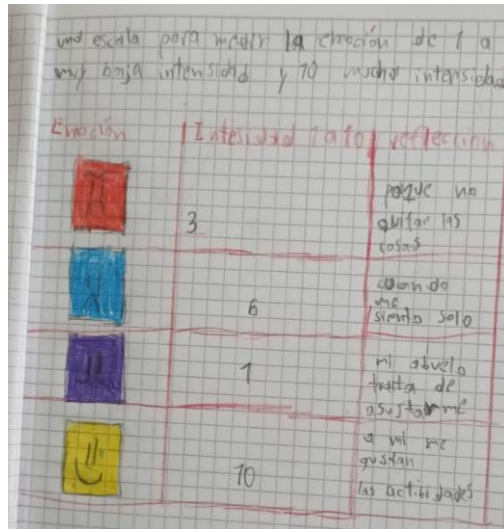 una escala para medir la emoción de 1 a
muy baja intensidad y 10 mucha intensidad
Emoción | Intesidad 1 a 10 | reflección
3
porque no
quitar las
cosas
6
cuando
me
siento solo
1
mi abuelo
trata de
asustarme
10
a mi me
gustan
las actibidades